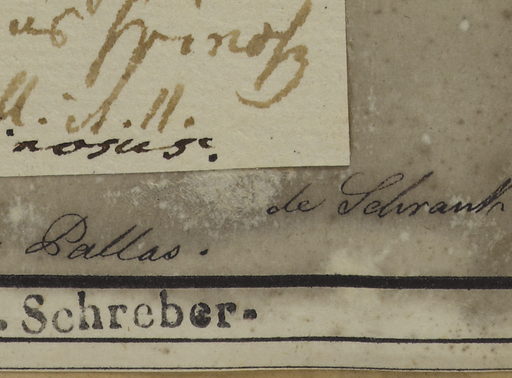 us spinosz
M. A. 11.
inosus.
de Schrank
Pallas.
. Schreber.